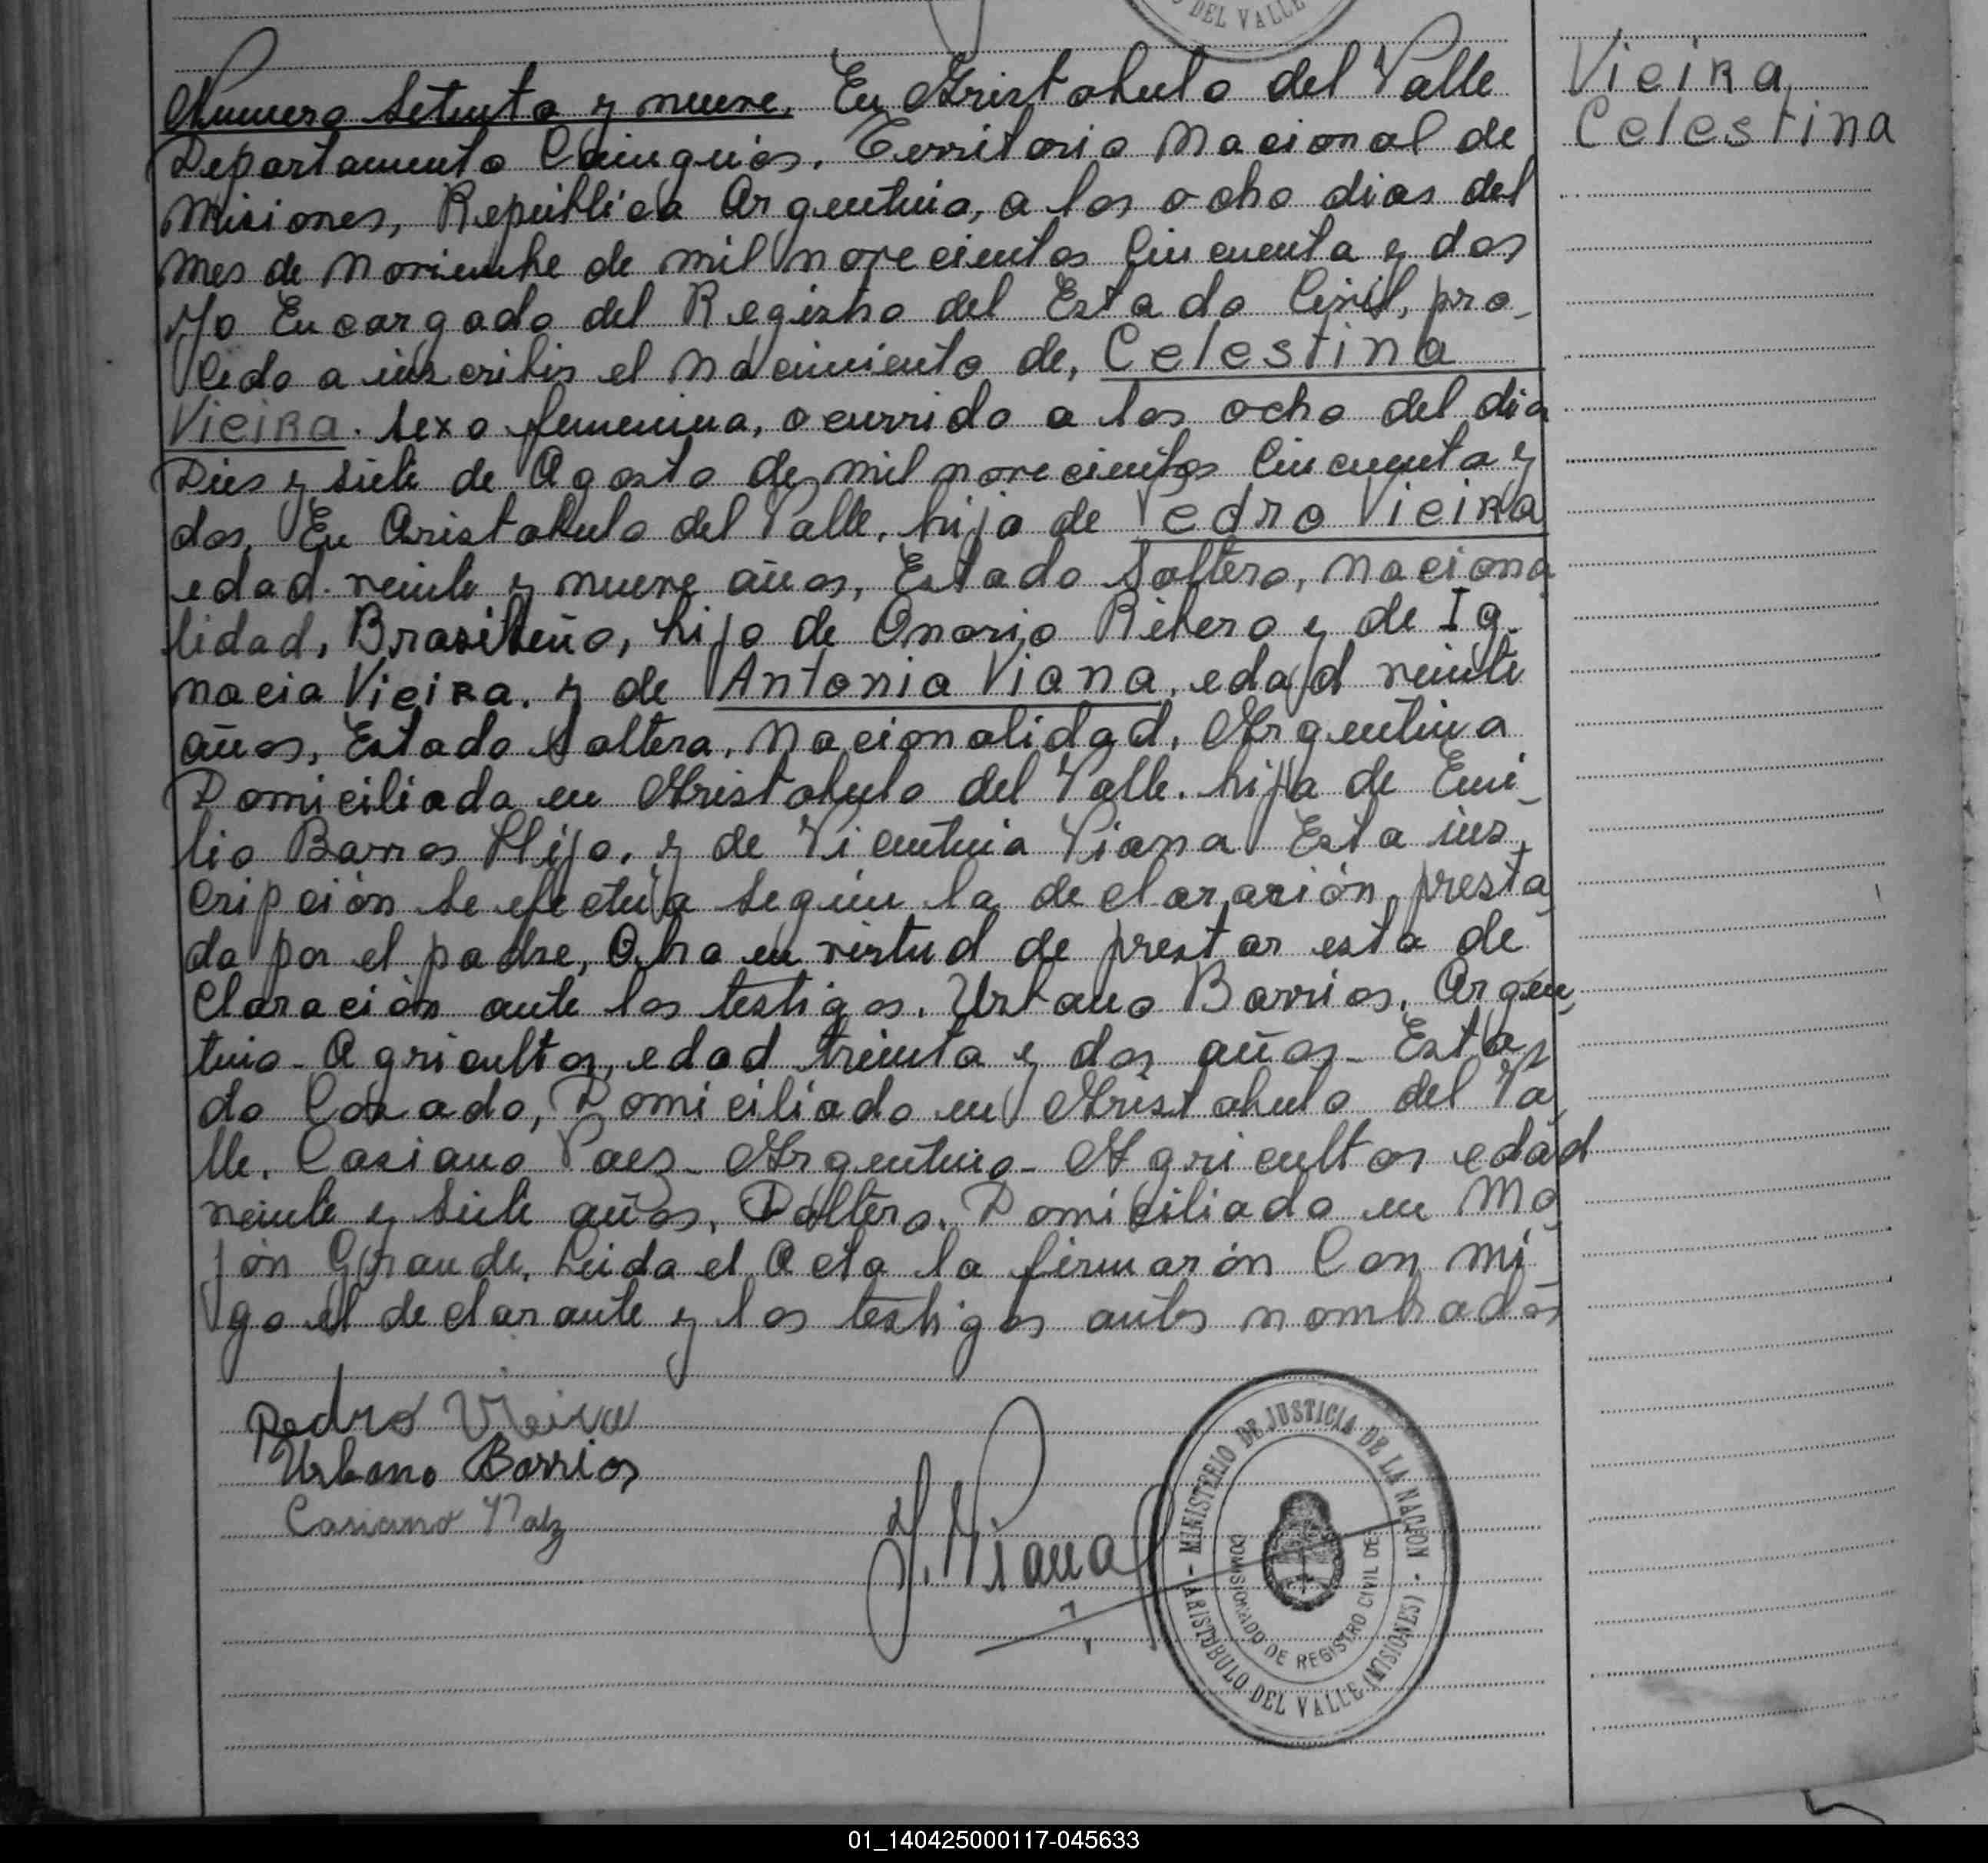 DEL VALLE
Numero Setenta y nueve. En Aristobulo del Valle
Departamento Cainguás. Territorio Nacional de
Misiones, República Argentina, a los ocho dias del
mes de Noviembre de mil novecientos Cincuenta y dos
Yo Encargado del Registro del Estado Civil, pro_
cedo a inscribir el Nacimiento de, Celestina
Vieira. sexo femenina, ocurrido a las ocho del dia
Dies y siete de Agosto de mil novecientos Cincuenta y
dos, En Aristobulo del Valle, hija de Pedro Vieira
edad veinte y nueve años, Estado Soltero, naciona
lidad, Brasileño, hijo de Onorio Ribero y de Ig_
nacia Vieira. y de Antonia Viana, edad veinte
años, Estado Soltera, Nacionalidad, Argentina
Domiciliada en Aristobulo del Valle. hija de Emi_
lio Barros Hijo. y de Vicentina Viana Esta ins_
cripción se efectúa según la declaración presta
da por el padre, Obra en virtud de prestar esta de
claración ante los testigos. Urbano Barrios, Argen_
tino_ Agricultor, edad treinta y dos años_ Esta_
do Casado, Domiciliado en Aristobulo del Va_
lle. Casiano Paez_ Argentino_ Agricultor edad
veinte y siete años, Soltero. Domiciliado en Mo_
jón Grande. Leida el Acta la firmarón Con mi_
go el declarante y los testigos antes nombrados
Pedro Vieira
Urbano Barrios
Casiano Paez
Viana
- MINISTERIO DE JUSTICIA DE LA NACION -
COMISIONADO DE REGISTRO CIVIL DE
ARISTOBULO DEL VALLE (MISIONES)
Vieira
Celestina
01_140425000117-045633